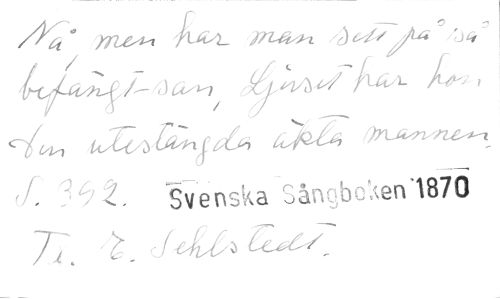 Nå, men har man sett på så
befängt-san, Ljuset har hon
Den utestängda äkta mannen.
S. 392. Svenska Sångboken 1870
Ti. E. Sehlstedt.